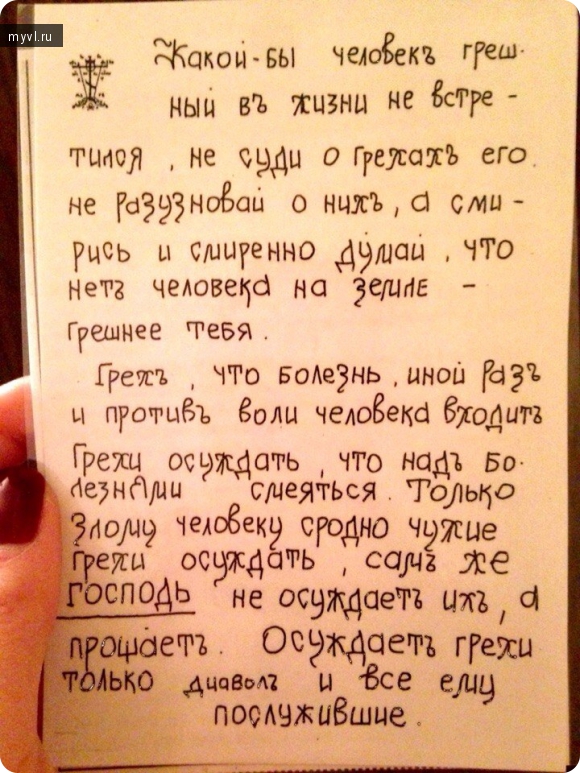 myvl.ru
Какой-бы человекъ греш-
ный въ жизни не встре-
тился, не суди о грехахъ его.
не разузновай о нихъ, а сми-
рись и смиренно думай, что
нетъ человека на земле -
грешнее тебя.
Грехъ, что болезнь, иной разъ
и противъ воли человека входитъ
Грехи осуждать, что надъ бо-
лезнями смеяться. Только
злому человеку сродно чужие
грехи осуждать, самъ же
ГОСПОДЬ не осуждаетъ ихъ, а
прощаетъ. Осуждаетъ грехи
только диаволъ и все ему
послужившие.